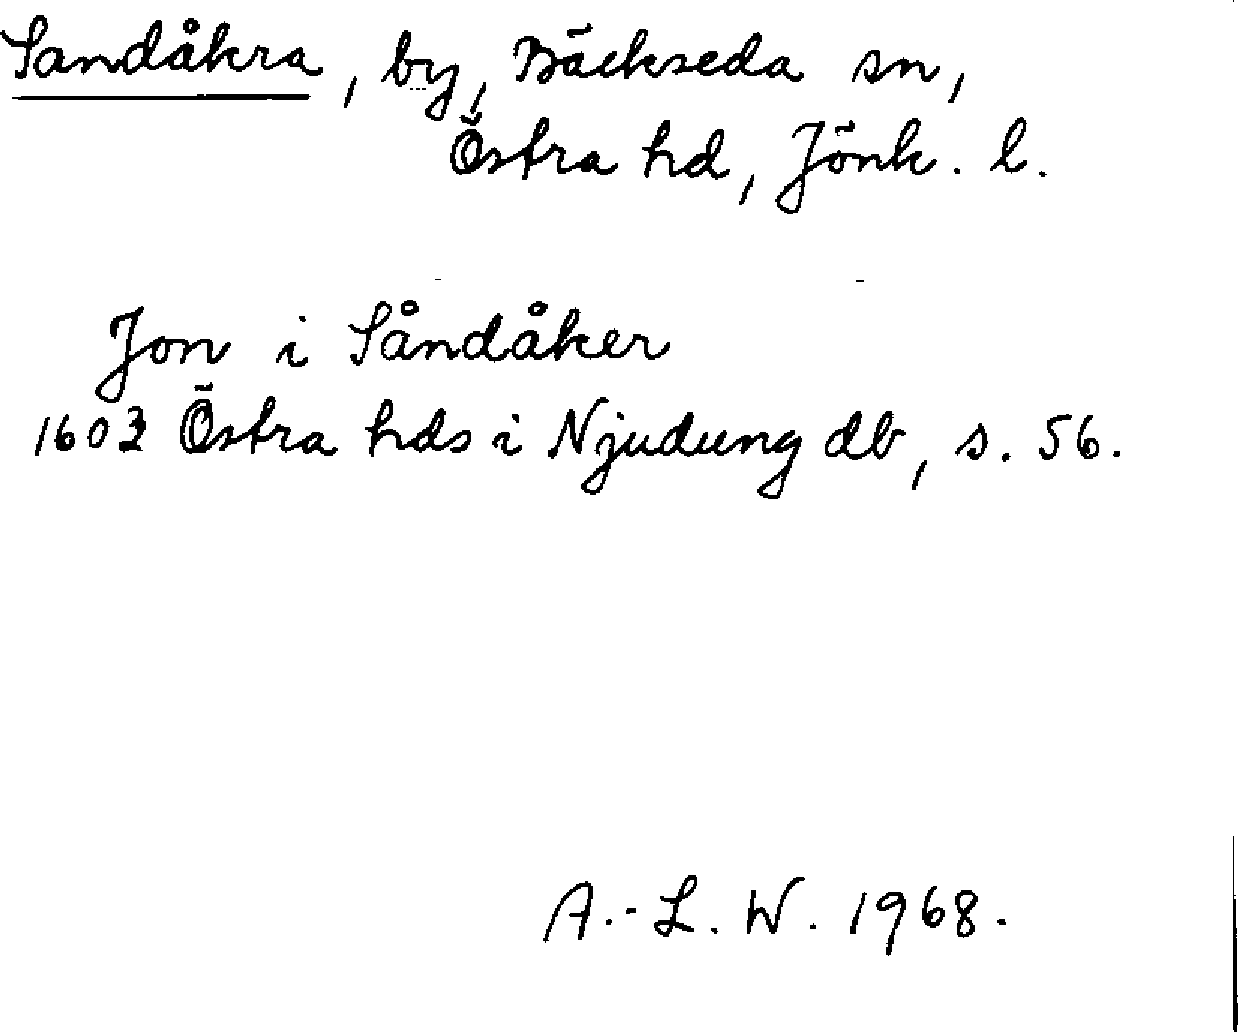 Sandåkra, by, Bäckseda sn,
Östra hd, Jönk. l.
Jon i Såndåker
1603 Östra hds i Njudung db, s. 56.
A.-L. W. 1968.